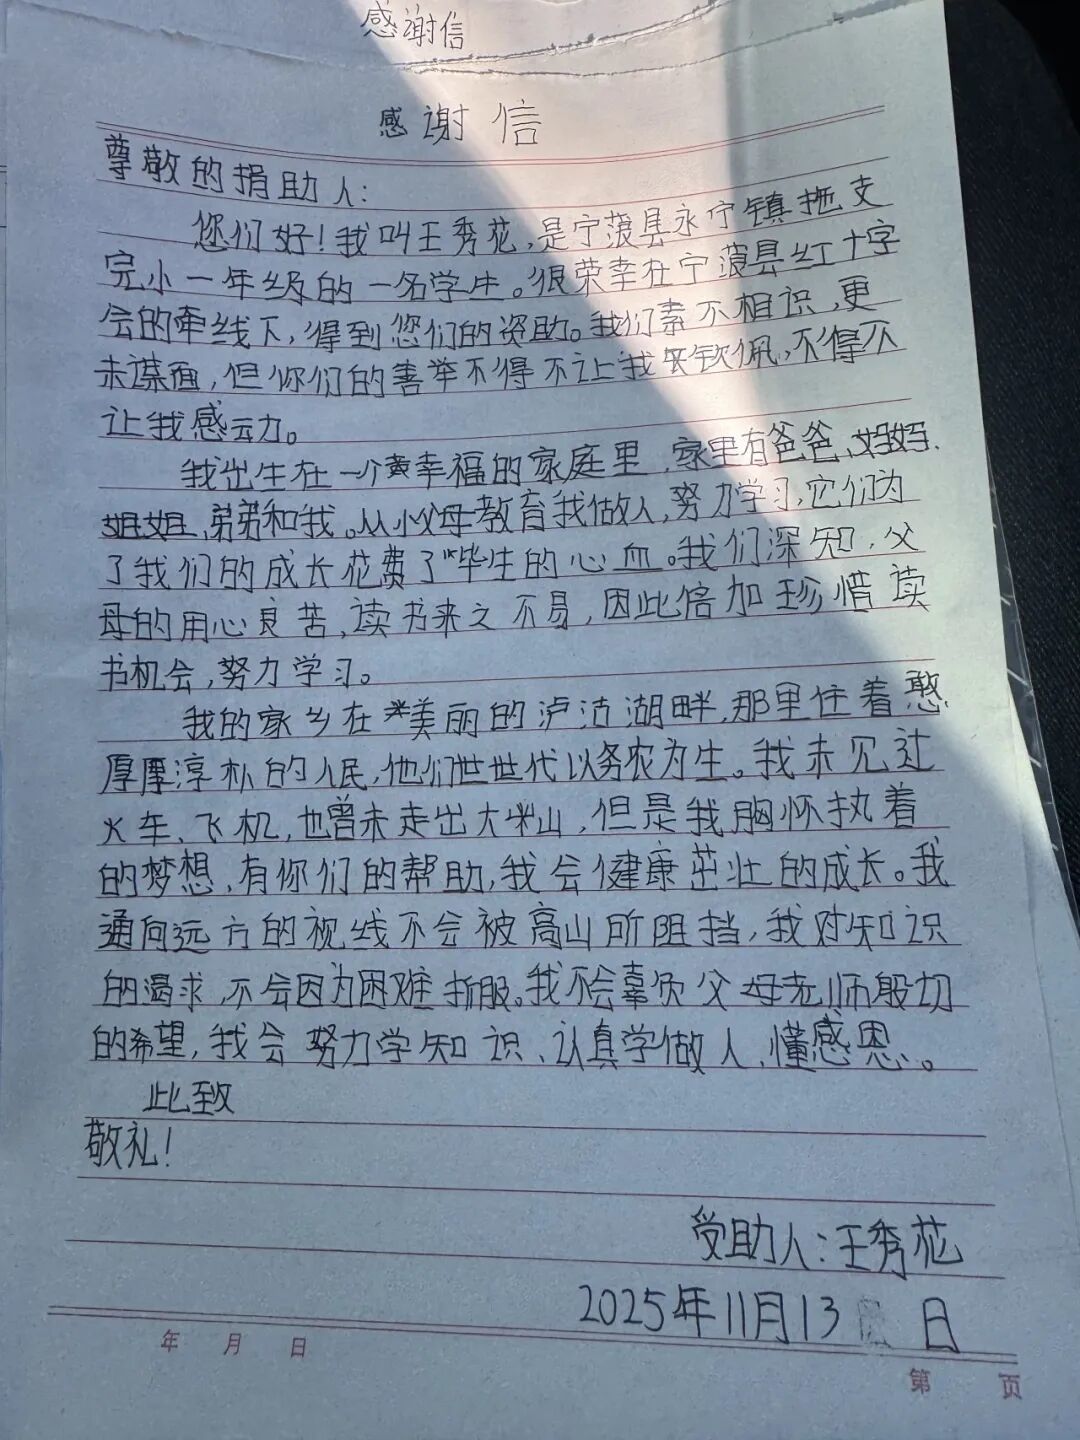 感谢信
感谢信
尊敬的捐助人:
您们好!我叫王秀花,是宁蒗县永宁镇拖支
完小一年级的一名学生。很荣幸在宁蒗县红十字
会的牵线下,得到您们的资助。我们素不相识,更
未谋面,但你们的善举不得不让我钦佩,不得不
让我感动。
我出生在一个幸福的家庭里,家里有爸爸、妈妈、
姐姐、弟弟和我。从小父母教育我做人,努力学习,它们为
了我们的成长花费了毕生的心血。我们深知,父
母的用心良苦,读书来之不易,因此倍加珍惜读
书机会,努力学习。
我的家乡在美丽的泸沽湖畔,那里住着憨
厚淳朴的人民,他们世世代以务农为生。我未见过
火车、飞机,也曾未走出大山,但是我胸怀执着
的梦想,有你们的帮助,我会健康茁壮的成长。我
通向远方的视线不会被高山所阻挡,我对知识
的渴求,不会因为困难折服。我不会辜负父母老师殷切
的希望,我会努力学知识、认真学做人,懂感恩。
此致
敬礼!
受助人:王秀花
2025年11月13日
年 月 日
第 页